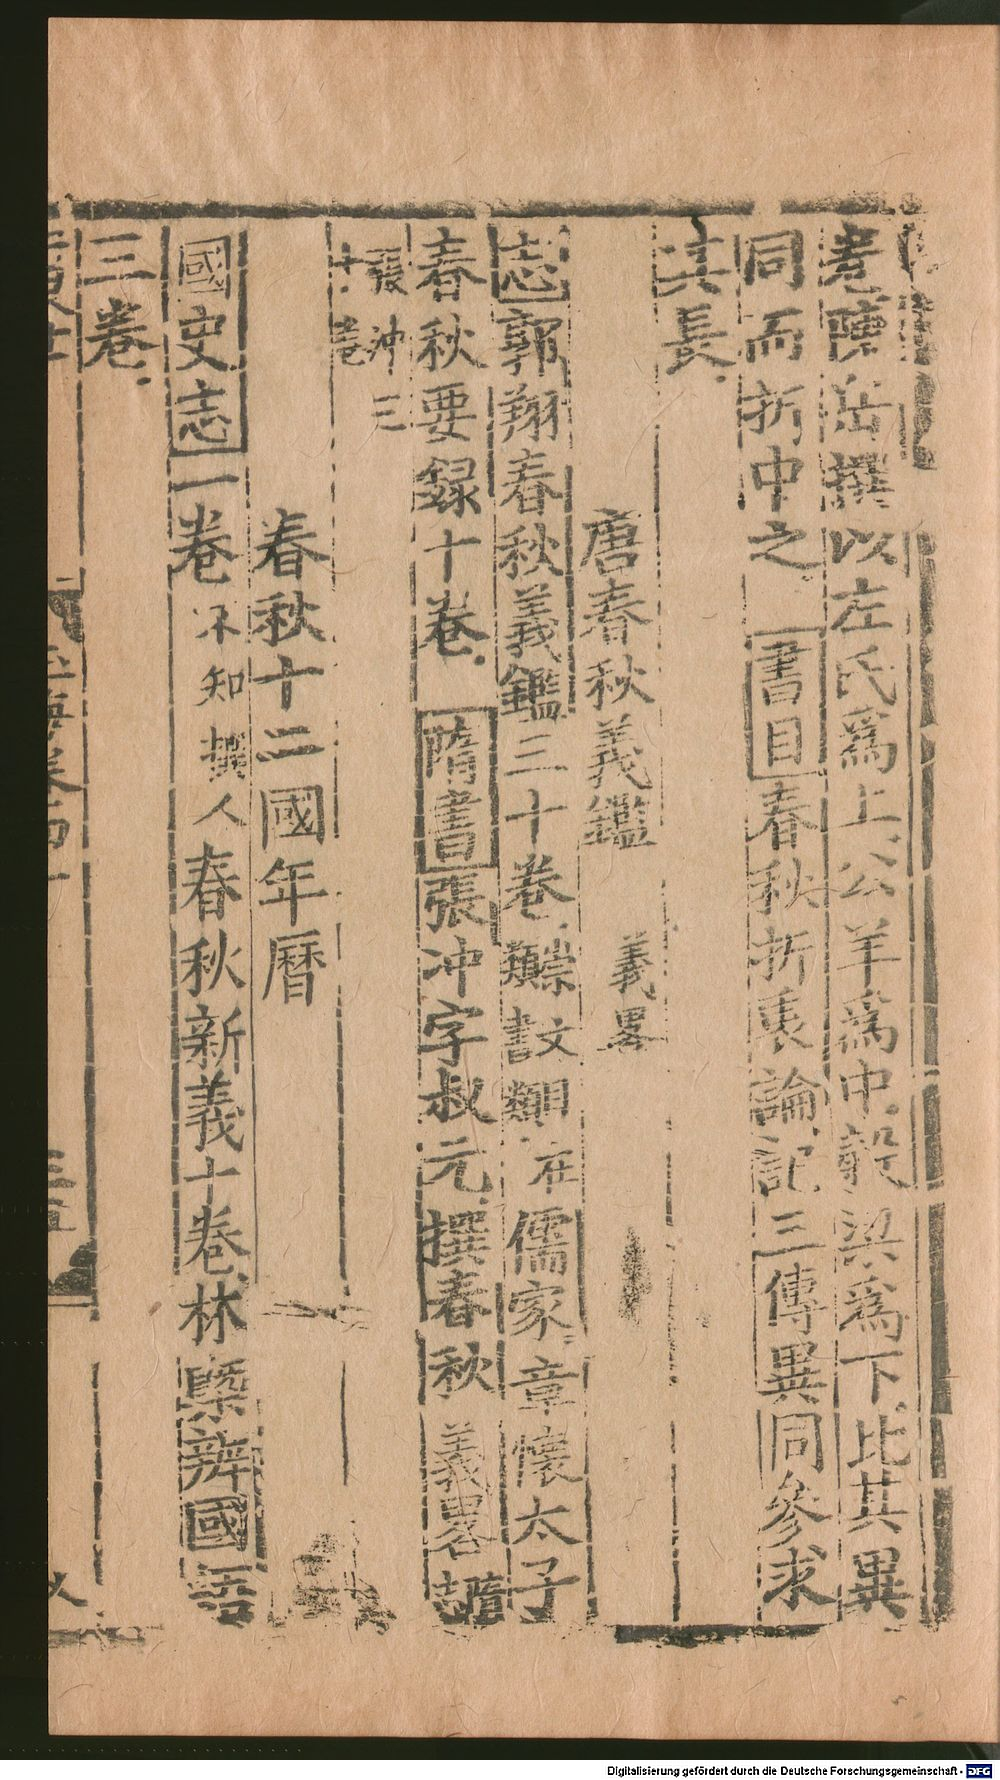 卷陳岳撰以左氏爲上公羊爲中穀梁爲下比其異
同而折中之書目春秋折衷論記三傳異同參求
其長
唐春秋義鑑 義畧
志郭翔春秋義鑑三十卷崇文類書類同在儒家章懷太子
春秋要録十卷隋書張冲字叔元撰春秋義畧隋志
張冲三
十卷
春秋十二國年曆
國史志一卷不知撰人春秋新義十卷林槩辨國語
三卷
Digitalisierung gefördert durch die Deutsche Forschungsgemeinschaft - DFG